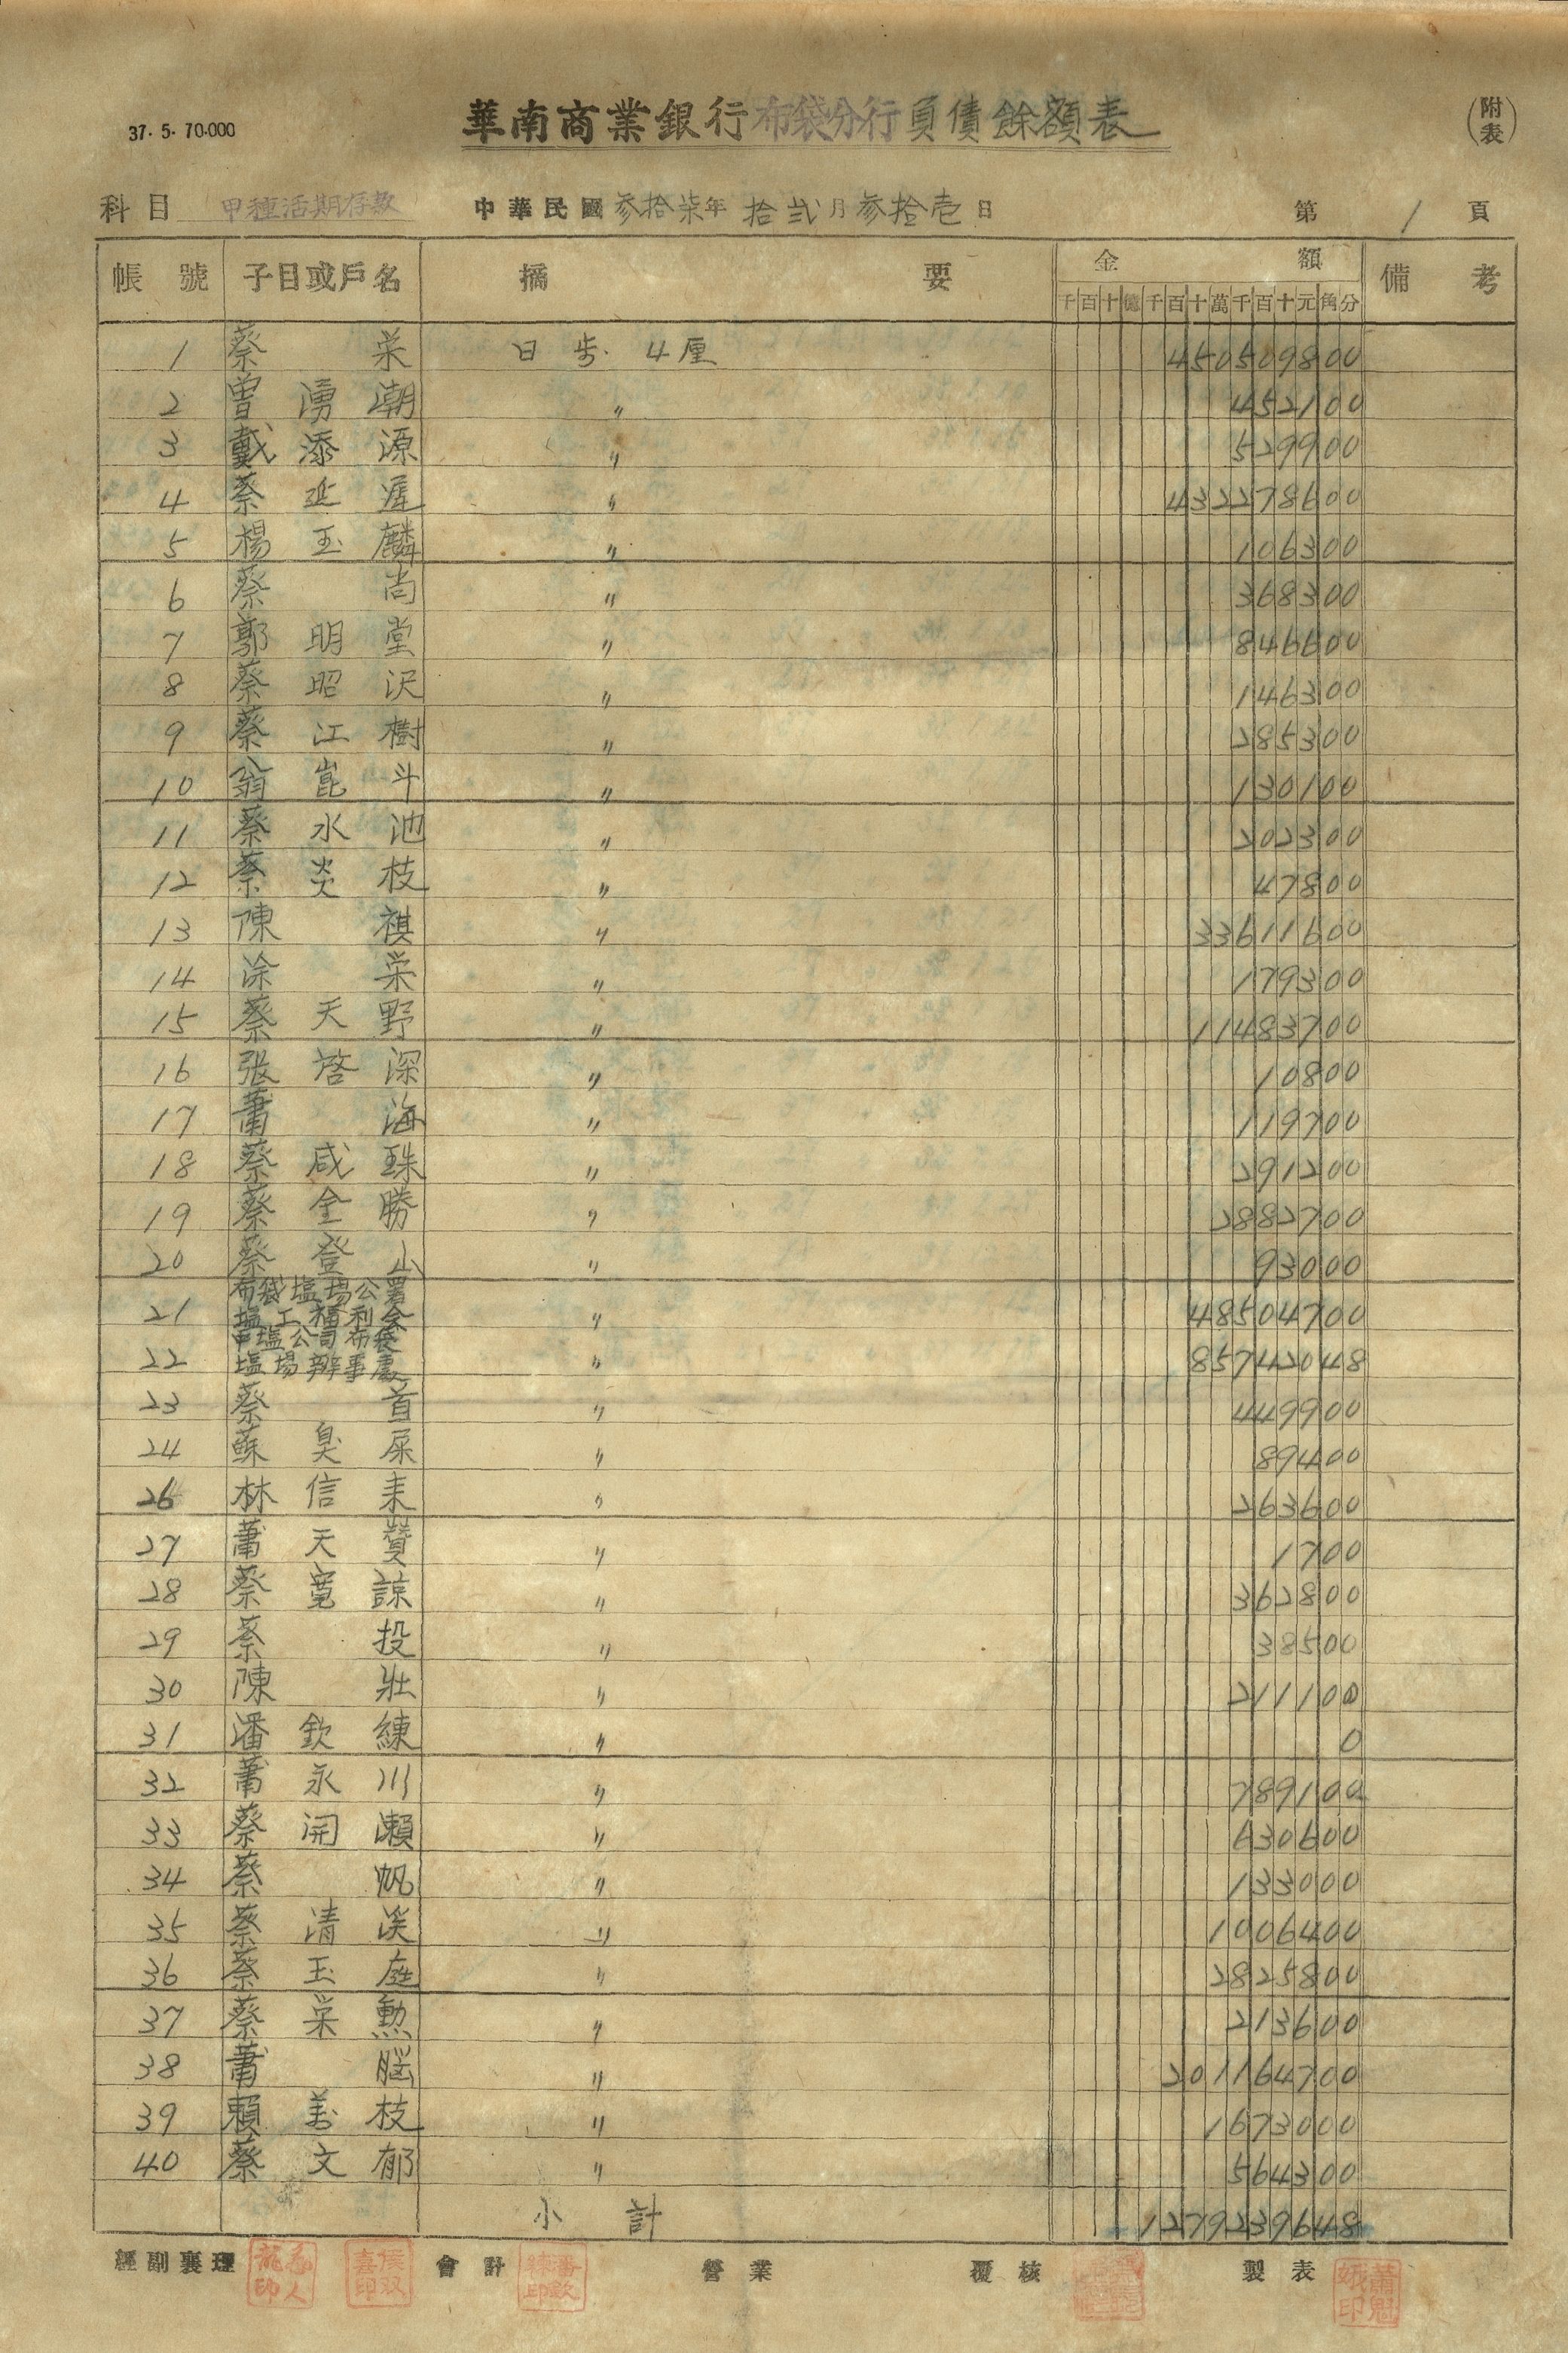 37. 5. 70.000
華南商業銀行布袋分行負債餘額表
(附表)
科目 甲種活期存款 中華民國參拾柒年拾弍月參拾壱日 第1頁
帳號 子目或戶名 摘要 金額 備考
千百十億千百十萬千百十元角分
1 蔡栄 日歩 4厘 450509800
2 曾湧潮 〃 452100
3 戴添源 〃 529900
4 蔡延遅 〃 432278600
5 楊玉麟 〃 106300
6 蔡尚 〃 368300
7 郭明堂 〃 846600
8 蔡昭沢 〃 146300
9 蔡江樹 〃 285300
10 翁崑斗 〃 130100
11 蔡水池 〃 202300
12 蔡炎枝 〃 47800
13 陳祺 〃 33611600
14 涂栄 〃 179300
15 蔡天野 〃 11483700
16 張啓深 〃 10800
17 蕭海 〃 119700
18 蔡咸珠 〃 291200
19 蔡金勝 〃 2882700
20 蔡登山 〃 93000
21 布袋塩場公署塩工福利会 〃 48504700
22 中塩公司布袋塩場辦事處 〃 85742048
23 蔡首 〃 449900
24 蘇臭屎 〃 89400
26 林信耒 〃 263600
27 蕭天賛 〃 1700
28 蔡寬諒 〃 362800
29 蔡投 〃 38500
30 陳壯 〃 211100
31 潘欽練 〃 0
32 蕭永川 〃 789100
33 蔡開瀨 〃 630600
34 蔡帆 〃 133000
35 蔡清溪 〃 1006400
36 蔡玉庭 〃 2825800
37 蔡栄勲 〃 213600
38 蕭腦 〃 201164700
39 賴萬枝 〃 1673000
40 蔡文郁 〃 564300
小計 1279239648
經副襄理 會計 營業 覆核 製表